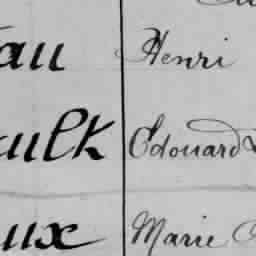 au Henri
aulk Edouard
ux Marie